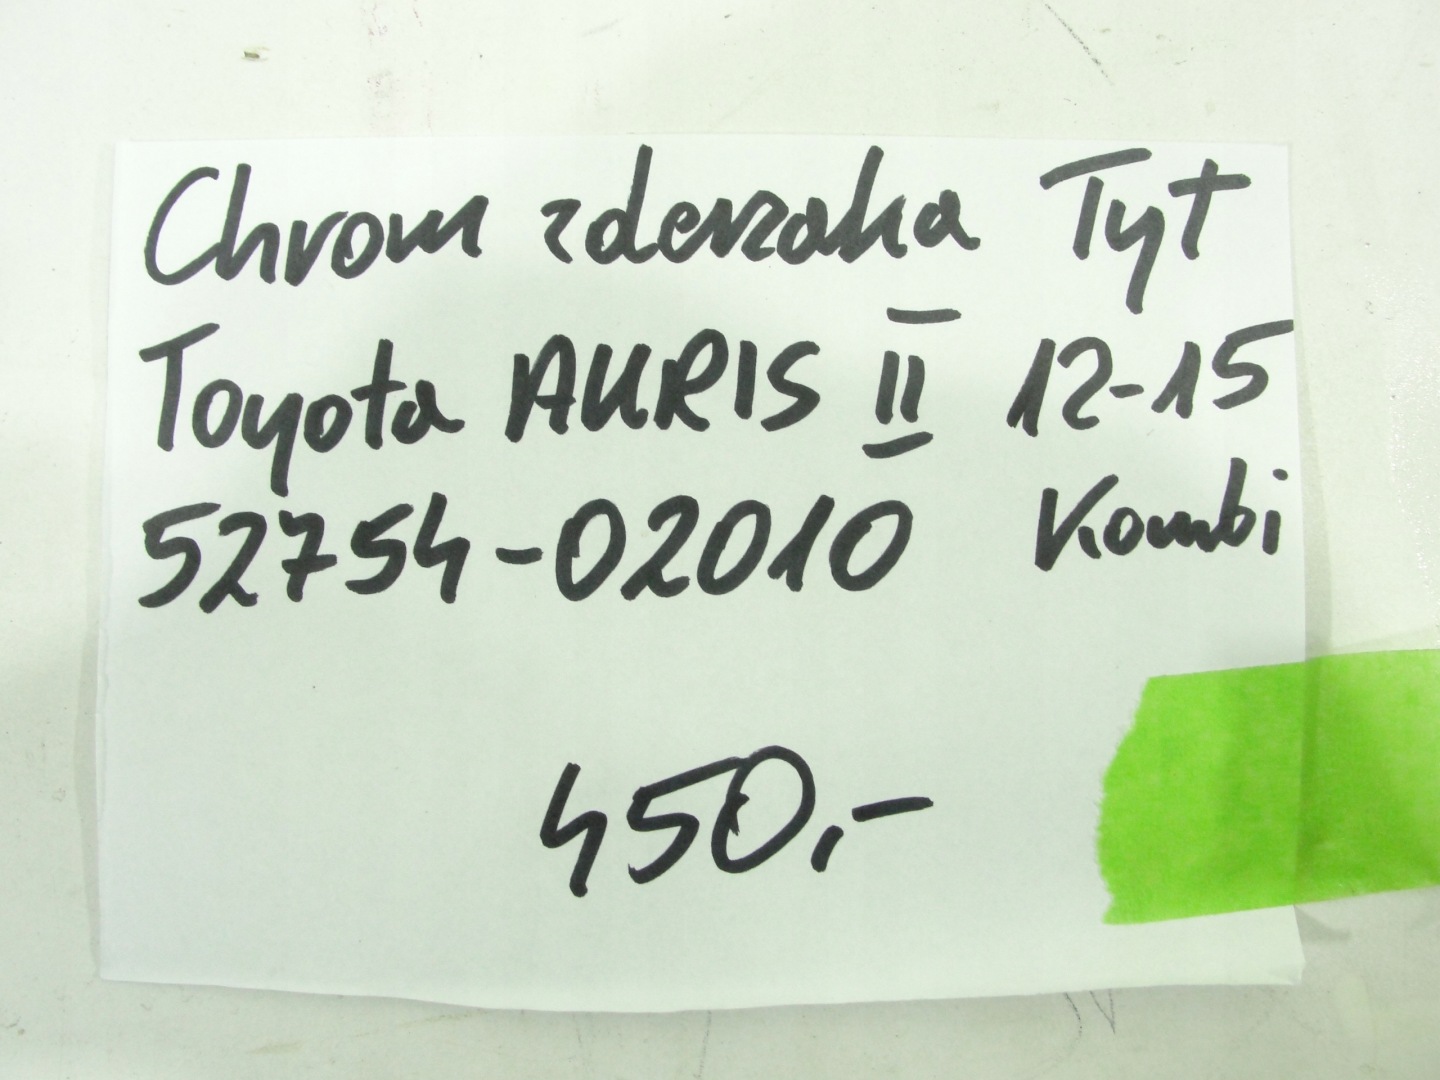 Chrom zderzaka Tyt
Toyota AURIS II 12-15
52754-02010 Kombi
450,-